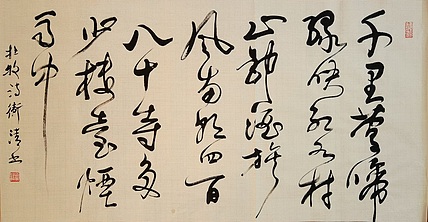 千里鶯啼
綠映紅水村
山郭酒旗
風南朝四百
八十寺多
少樓臺煙
雨中
杜牧詩